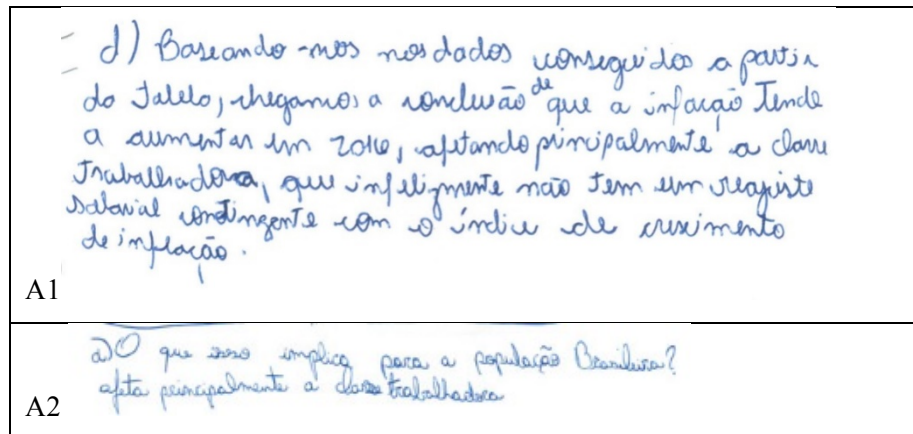 d) Baseando-nos nos dados conseguidos a partir
do Tabela, chegamos a conclusão de que a infação tende
a aumentar em 2016, afetando principalmente a classe
trabalhadora, que infelizmente não tem um reajuste
salarial contingente com o índice de crescimento
de inflação.
A1
a) O que isso implica para a população Brasileira?
afeta principalmente a classe trabalhadora
A2